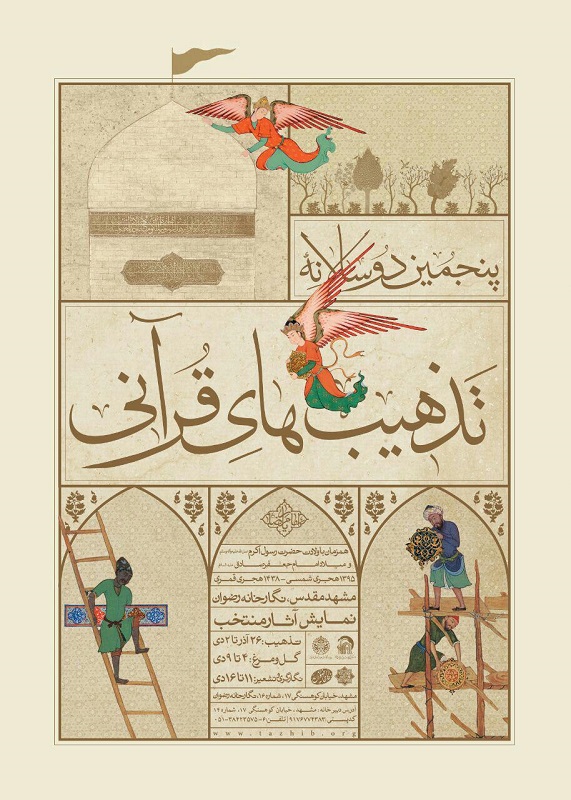 پنجمین دوسالانهٔ
تذهیب‌های قرآنی
همزمان با ولادت حضرت رسول اکرم
و میلاد امام جعفر صادق
۱۳۹۵ هجری شمسی - ۱۴۳۸ هجری قمری
مشهد مقدس، نگارخانه رضوان
نمایش آثار منتخب
تذهیب: ۲۶ آذر تا ۲ دی
گل و مرغ: ۴ تا ۹ دی
نگارگری و تشعیر: ۱۱ تا ۱۶ دی
مشهد، خیابان کوهسنگی ۱۷، شماره ۱۶، نگارخانه رضوان
آدرس دبیرخانه: مشهد، خیابان کوهسنگی ۱۷، شماره ۱۴
کدپستی: ۹۱۷۶۷۷۴۳۸۳ | تلفن: ۶-۳۸۴۲۳۵۷۵-۰۵۱
www.tazhib.org